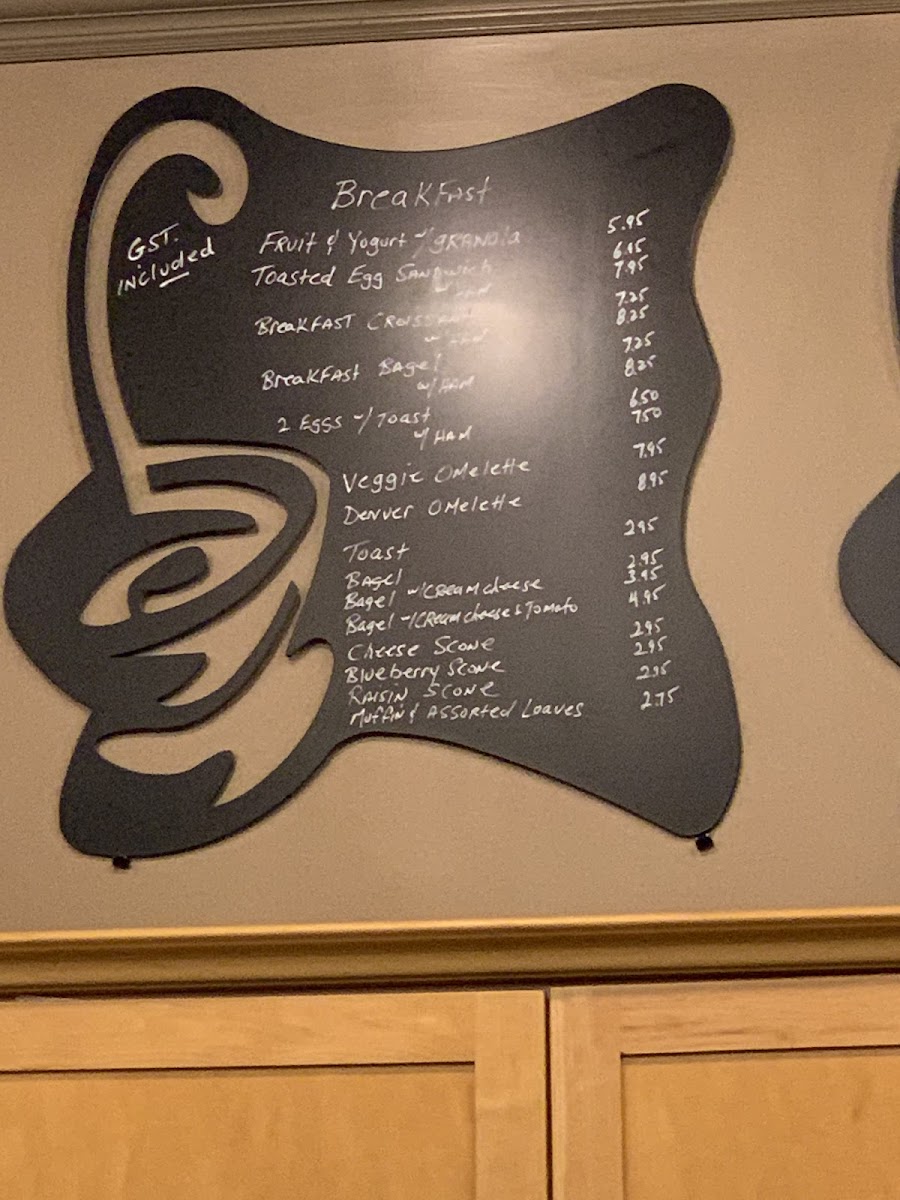 BreakFast
GST.
INCluded
FRUIT & Yogurt w/ GRANOla 5.95
Toasted Egg SANDWICH 6.95
w/ HAM 7.95
BreaKFAST CROISSANT 7.25
w/ HAM 8.25
BreaKFAst BAgel 7.25
w/ HAM 8.25
2 EGGS w/ TOAST 6.50
w/ HAM 7.50
Veggie OMelette 7.95
DeNver OMelette 8.95
Toast 2.95
BAgel 2.95
Bagel w/CReam cheese 3.95
Bagel w/CReam cheese & Tomato 4.95
Cheese Scone 2.95
Blueberry Scone 2.95
RAISIN SCONE 2.95
MUFFIN & ASSORted Loaves 2.75